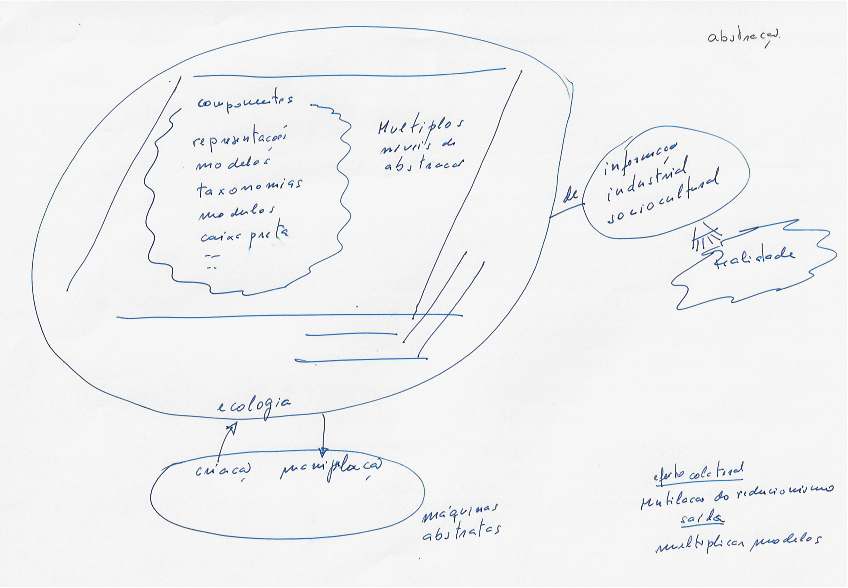 abstração
componentes
representação
modelos
taxonomias
modulos
caixa preta
Multiplos
niveis de
abstração
de
informação
industrial
sociocultural
Realidade
ecologia
criação manipulação
máquinas
abstratas
efeito colateral
Mutilação do reducionismo
saída
multiplicar modelos